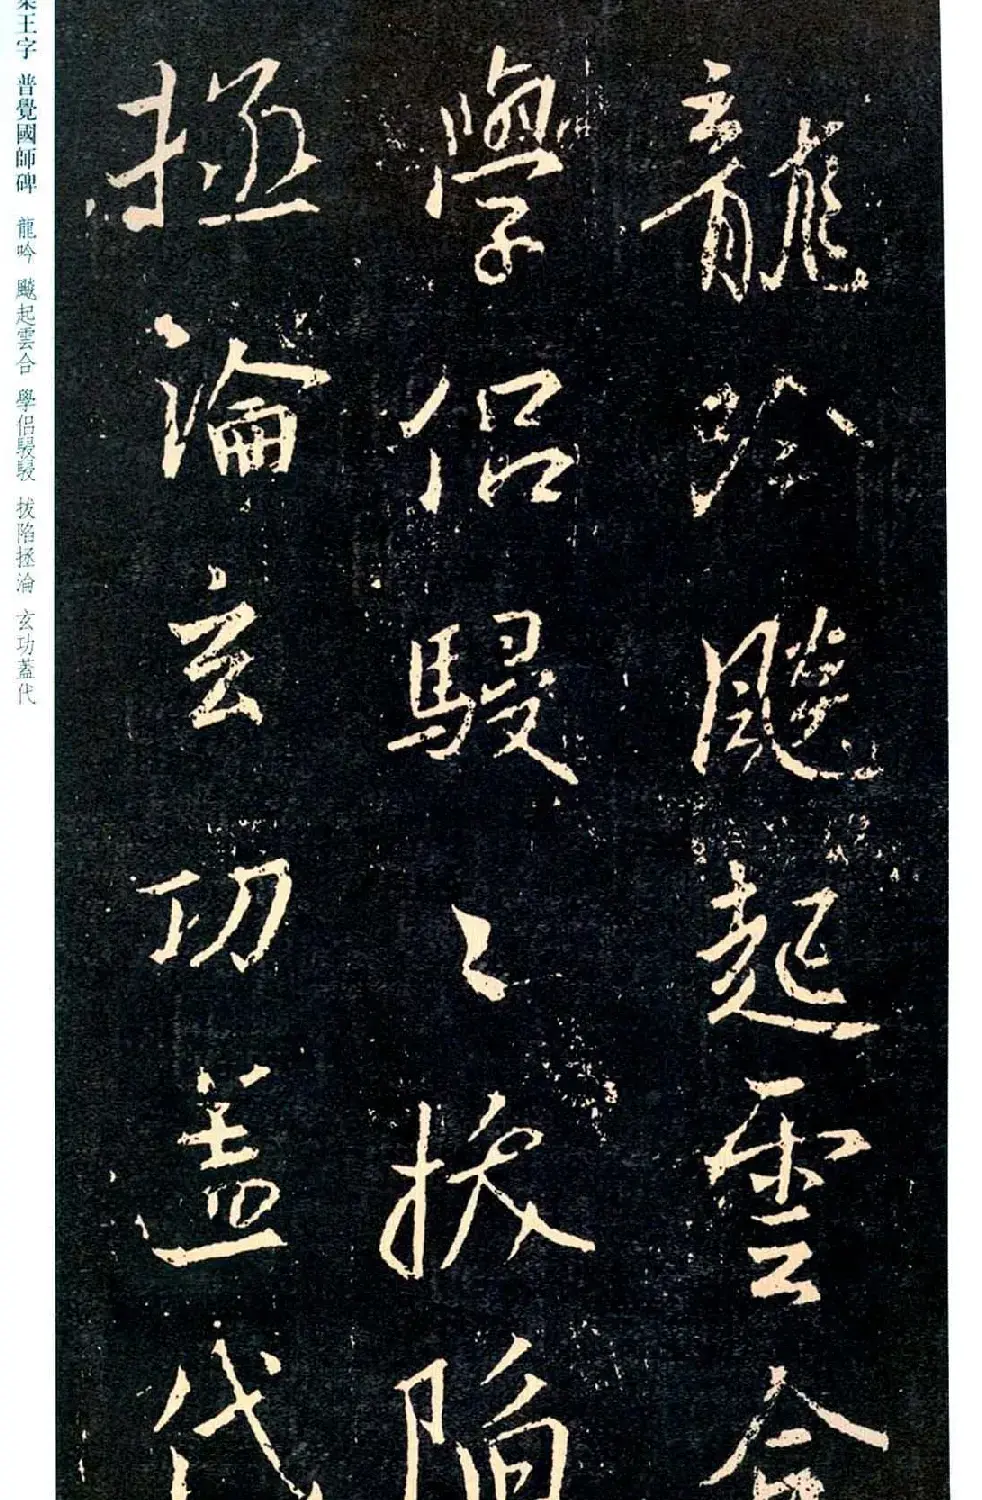 龍吟飈起雲合
學侶駸〻拔陷
拯淪玄功蓋代
集王字 普覺國師碑 龍吟 飈起雲合 學侶駸駸 拔陷拯淪 玄功蓋代